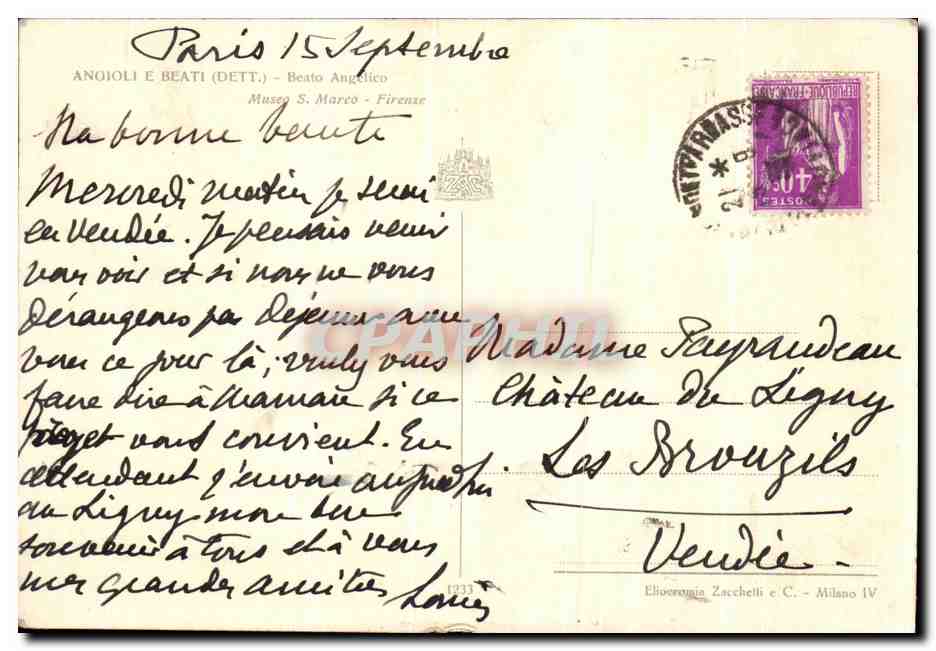 Paris 15 Septembre
ANGIOLI E BEATI (DETT.) - Beato Angelico
Museo S. Marco - Firenze
Ma bonne tante
Mercredi matin je serai
en Vendée. Je pensais venir
vous voir et si nous ne vous
dérangeons pas déjeuner avec
vous ce jour là; voulez vous
faire dire à Maman si ce
projet vous convient. En
attendant j'envoie aujourd'hui
au Ligny mon bon
souvenir à tous et à vous
mes grandes amitiés
REPUBLIQUE FRANÇAISE
POSTES
40c
CPAPHIL
Madame Payraudeau
Château du Ligny
Les Brouzils
Vendée
1233
Eliocromia Zacchelli e C. - Milano IV